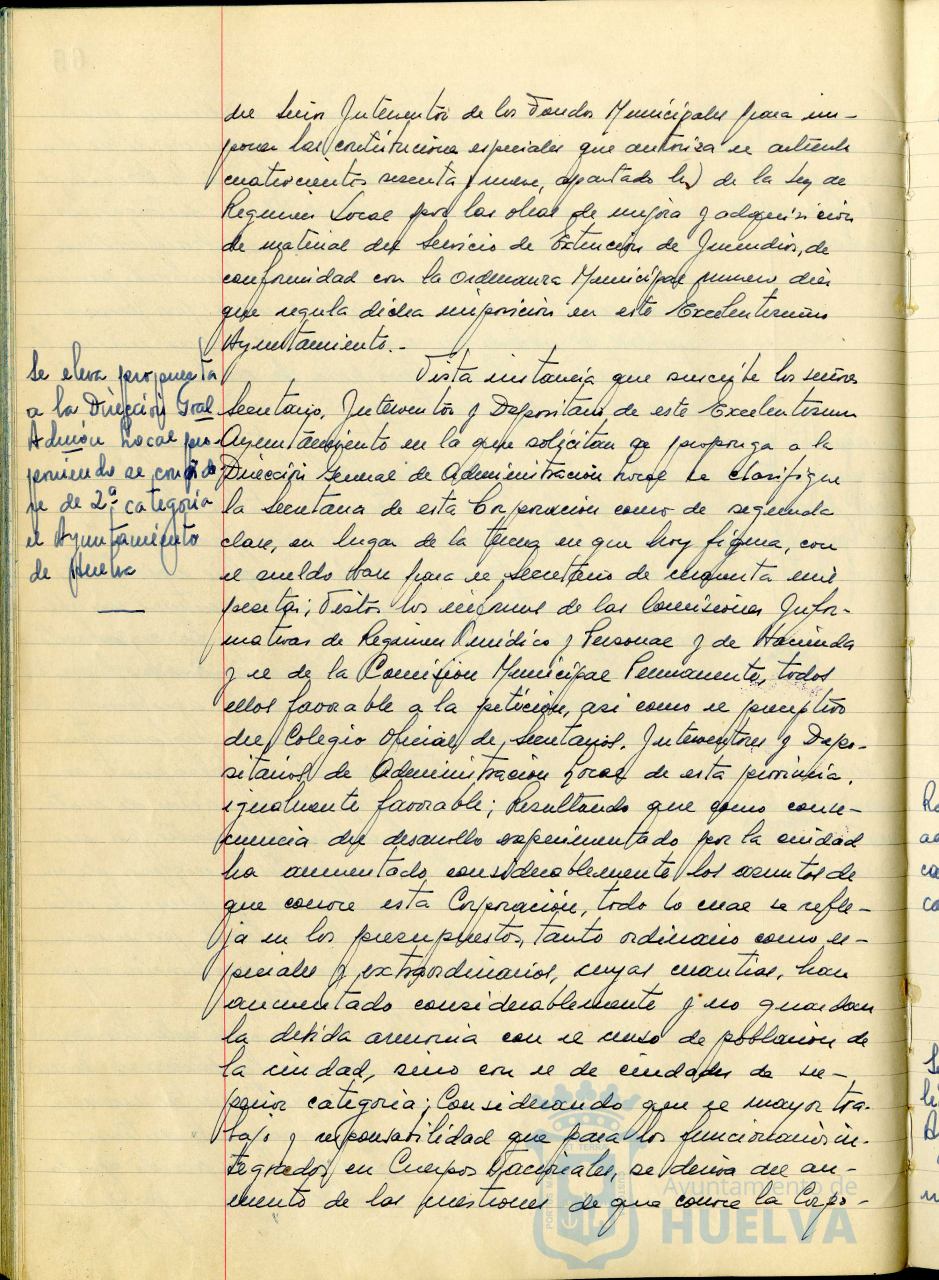 del Señor Interventor de los Fondos Municipales para im-
poner las contribuciones especiales que autoriza el artículo
cuatrocientos sesenta y nueve, apartado b) de la Ley de
Regimen Local por las obras de mejora y adquisición
de material del Servicio de Extinción de Incendios, de
conformidad con la Ordenanza Municipal numero diez
que regula dicha imposición en este Excelentisimo
Ayuntamiento.-
Se eleva propuesta
a la Dirección Gral
Admón Local pro-
poniendo se
re de 2ª categoria
el Ayuntamiento
de Huelva
Vista instancia que suscribe los señores
Secretario, Interventor y Depositario de este Excelentisimo
Ayuntamiento en la que solicitan se proponga a la
Dirección General de Administración Local se clasifique
la Secretaria de esta Corporación como de segunda
clase, en lugar de la tercera en que hoy figura, con
el sueldo base para el secretario de cincuenta mil
pesetas; Vistos los informes de las Comisiones Infor-
mativas de Regimen Juridico y Personal y de Hacienda
y el de la Comisión Municipal Permanente, todos
ellos favorable a la petición, asi como el preceptivo
del Colegio Oficial de Secretarios, Interventores y Depo-
sitarios de Administración Local de esta provincia,
igualmente favorable; Resultando que como conse-
cuencia del desarrollo experimentado por la ciudad
ha aumentado considerablemente los asuntos de
que conoce esta Corporación, todo lo cual se refle-
ja en los presupuestos, tanto ordinario como es-
peciales y extraordinarios, cuyas cuantias, han
aumentado considerablemente y no guardan
la debida armonia con el censo de población de
la ciudad, sino con el de ciudades de su-
perior categoria; Considerando que el mayor tra-
bajo y responsabilidad que para los funcionarios in-
tegrados en Cuerpos Nacionales, se deriva del au-
mento de las cuestiones de que conoce la Corpo-
Ayuntamiento de
HUELVA